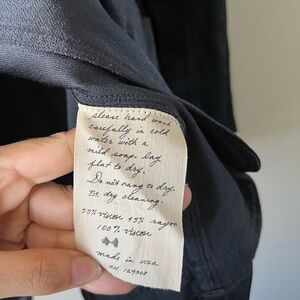 please hand wash
carefully in cold
water with a
mild soap. lay
flat to dry.
Do not hang to dry.
no dry cleaning.
55% viscose 45% rayon
100% viscose
made in usa
RN 129008